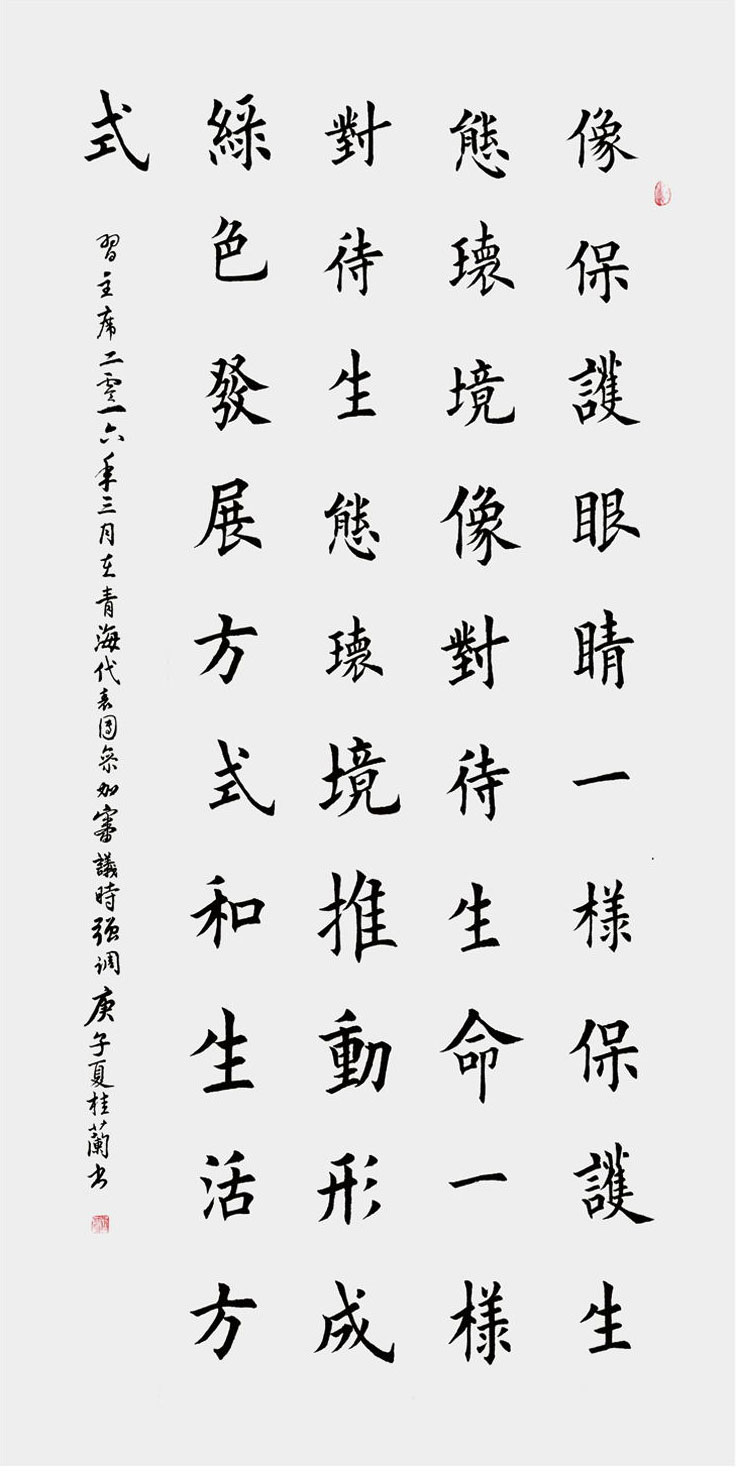 像保護眼睛一樣保護生
態環境像對待生命一樣
對待生態環境推動形成
綠色發展方式和生活方
式
習主席二零一六年三月在青海代表團參加審議時强调庚子夏桂蘭书